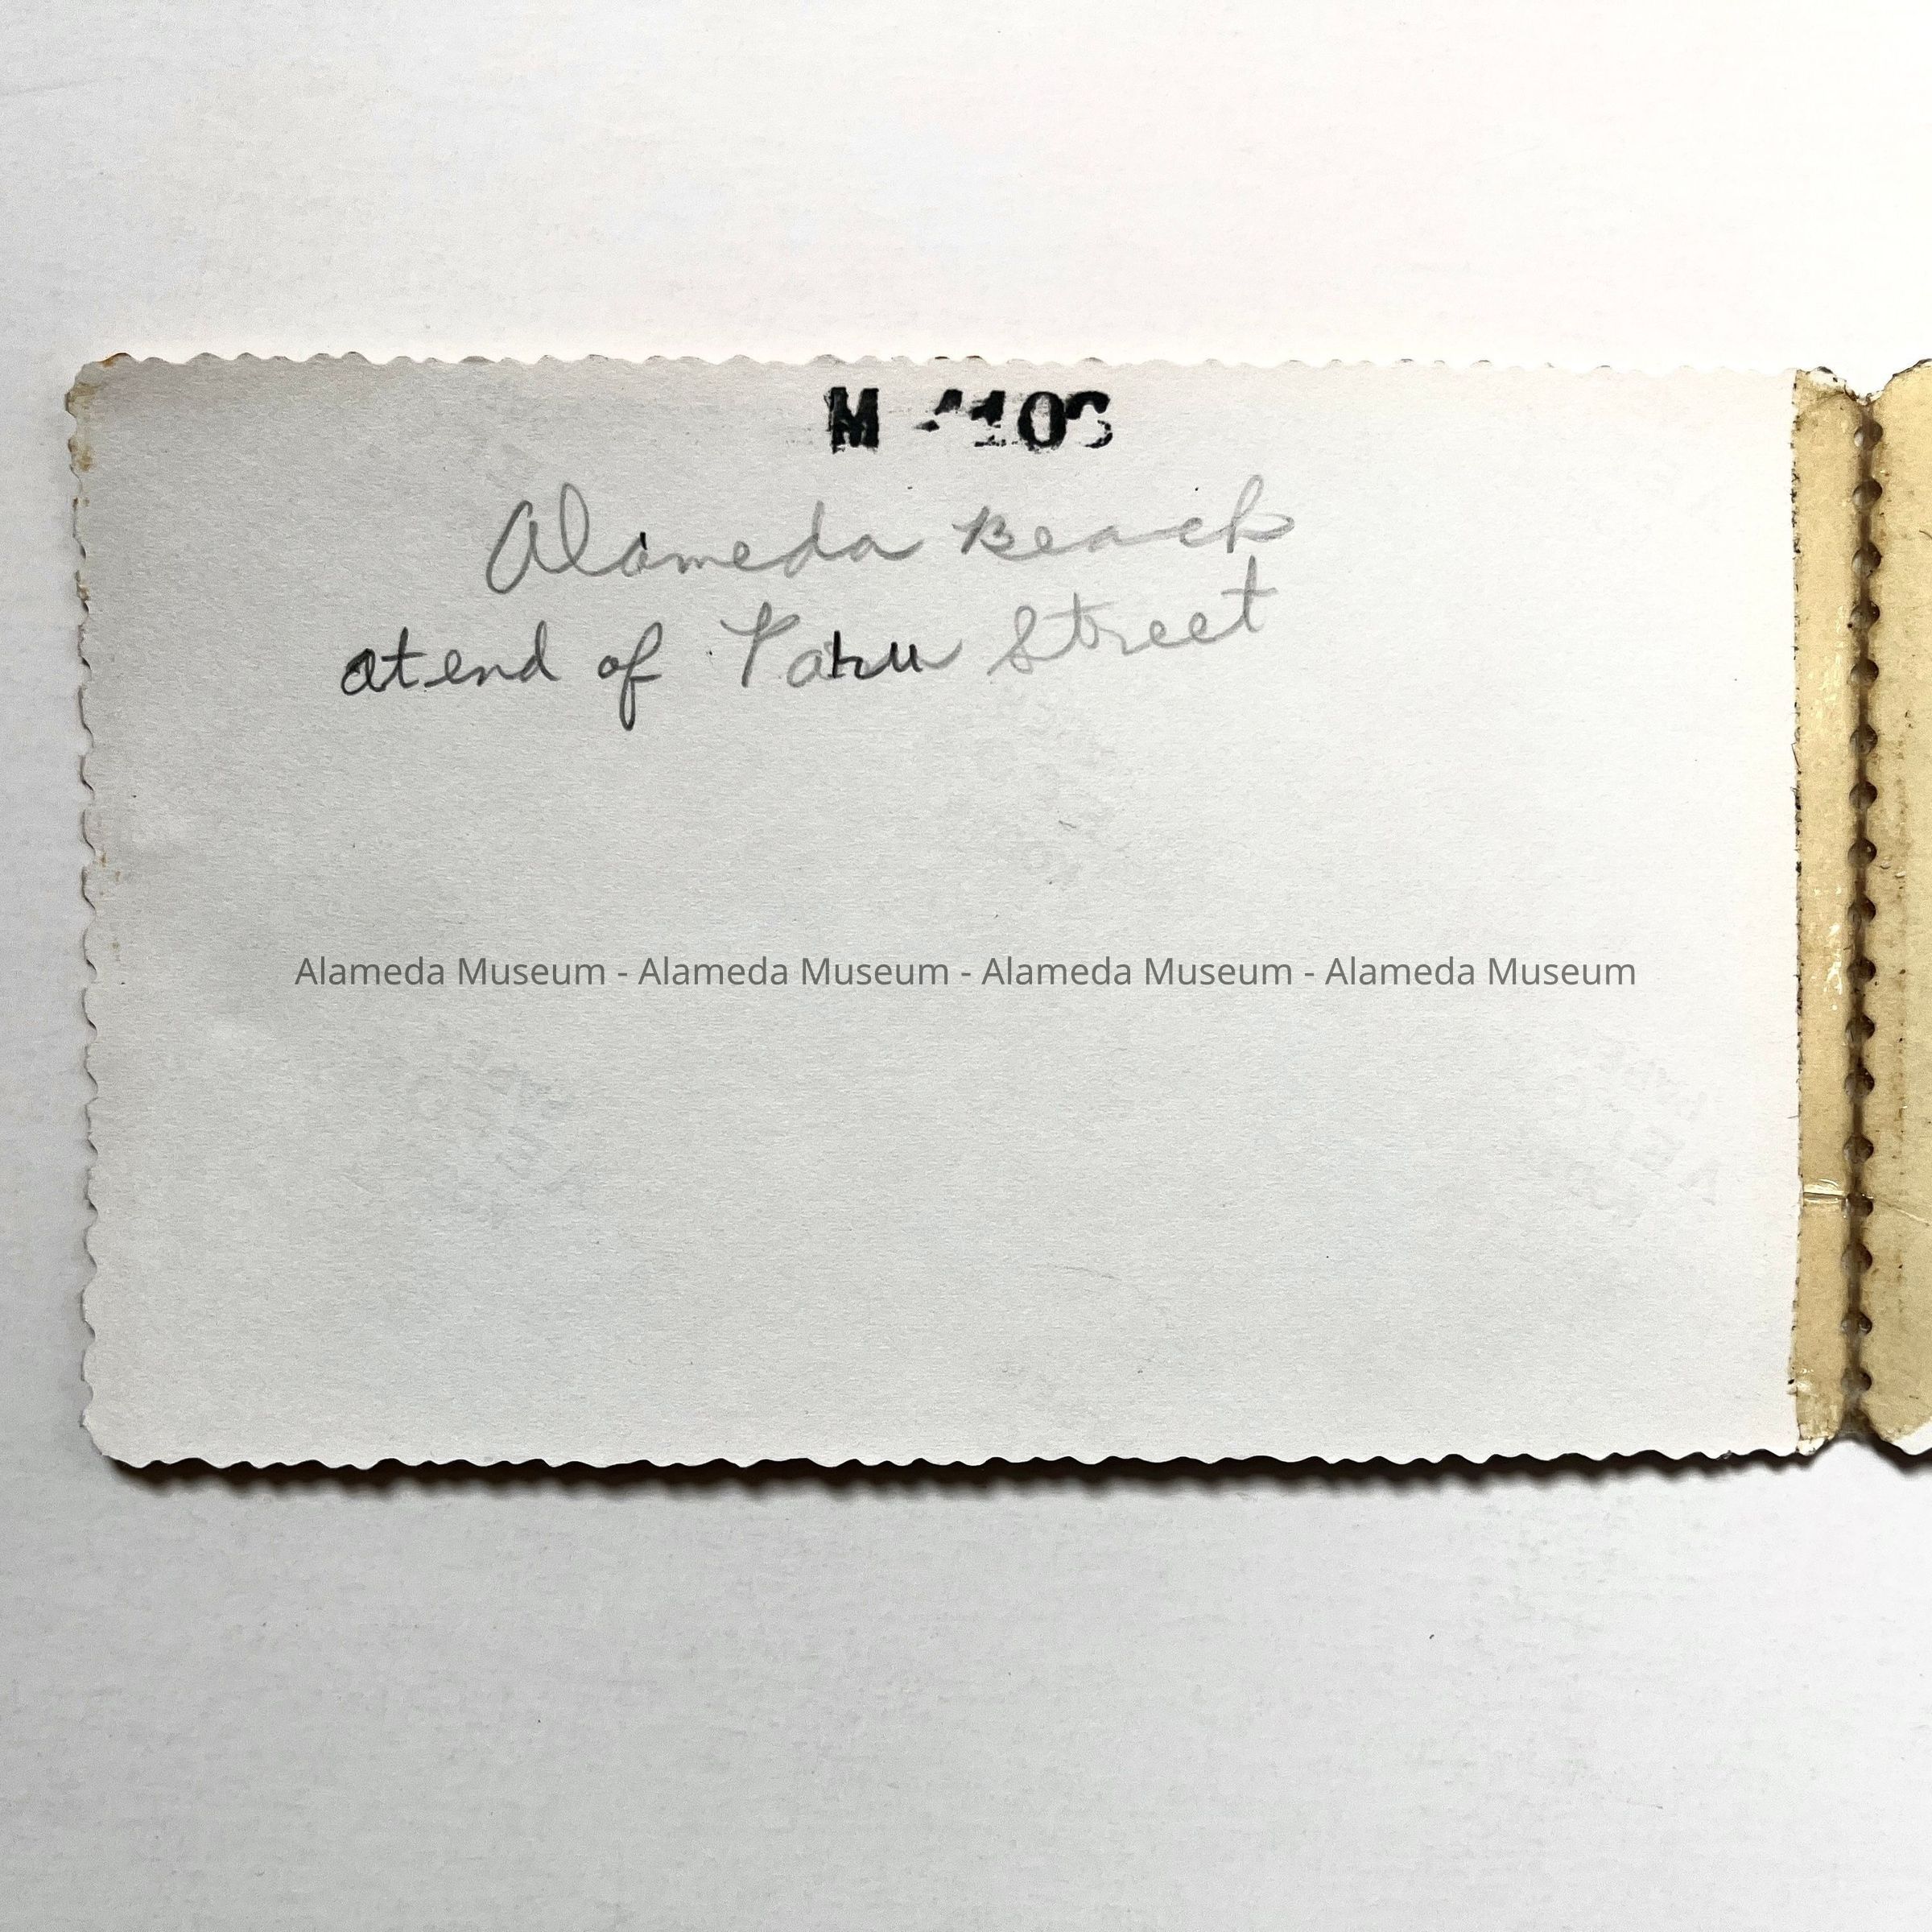 M
Alameda Beach
at end of Paru Street
Alameda Museum - Alameda Museum - Alameda Museum - Alameda Museum